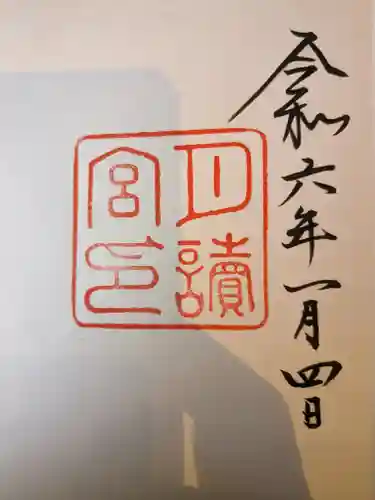 令和六年一月四日
月讀
宮印